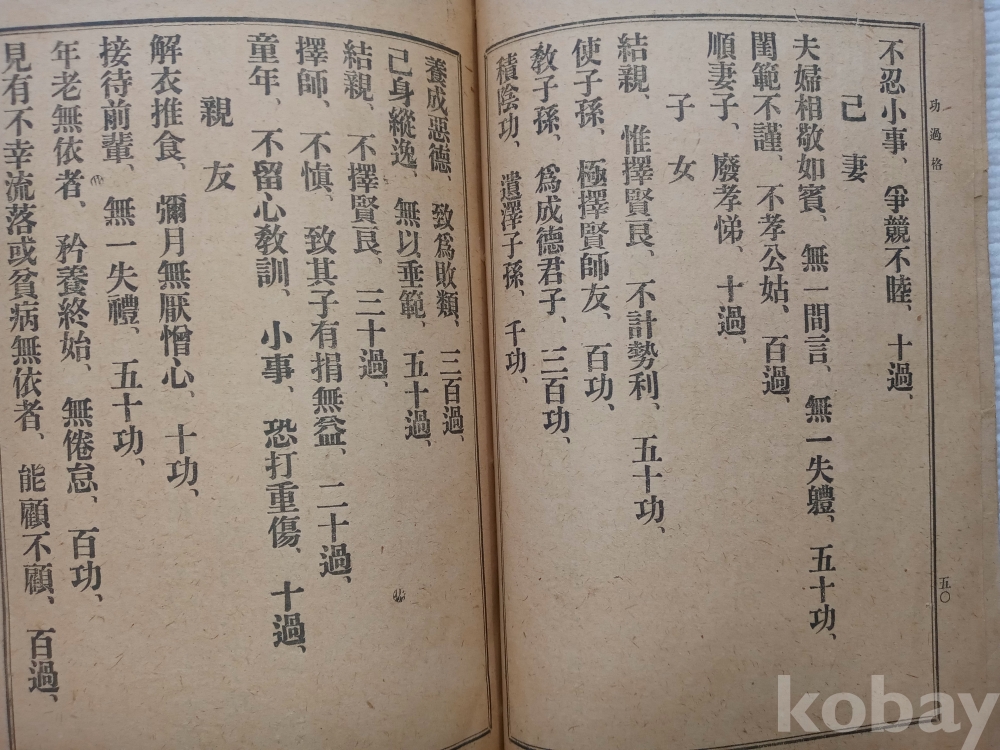 功過格
五〇
不忍小事、爭競不睦、十過、
己妻
夫婦相敬如賓、無一間言、無一失軆、五十功、
閨範不謹、不孝公姑、百過、
順妻子、廢孝悌、十過、
子女
結親、惟擇賢良、不計勢利、五十功、
使子孫、極擇賢師友、百功、
敎子孫、爲成德君子、三百功、
積陰功、遺澤子孫、千功、
養成惡德、致爲敗類、三百過、
己身縱逸、無以垂範、五十過、
結親、不擇賢良、三十過、
擇師、不愼、致其子有捐無益、二十過、
童年、不留心敎訓、小事、恐打重傷、十過、
親友
解衣推食、彌月無厭憎心、十功、
接待前輩、無一失禮、五十功、
年老無依者、矜養終始、無倦怠、百功、
見有不幸流落或貧病無依者、能顧不顧、百過、
kobay